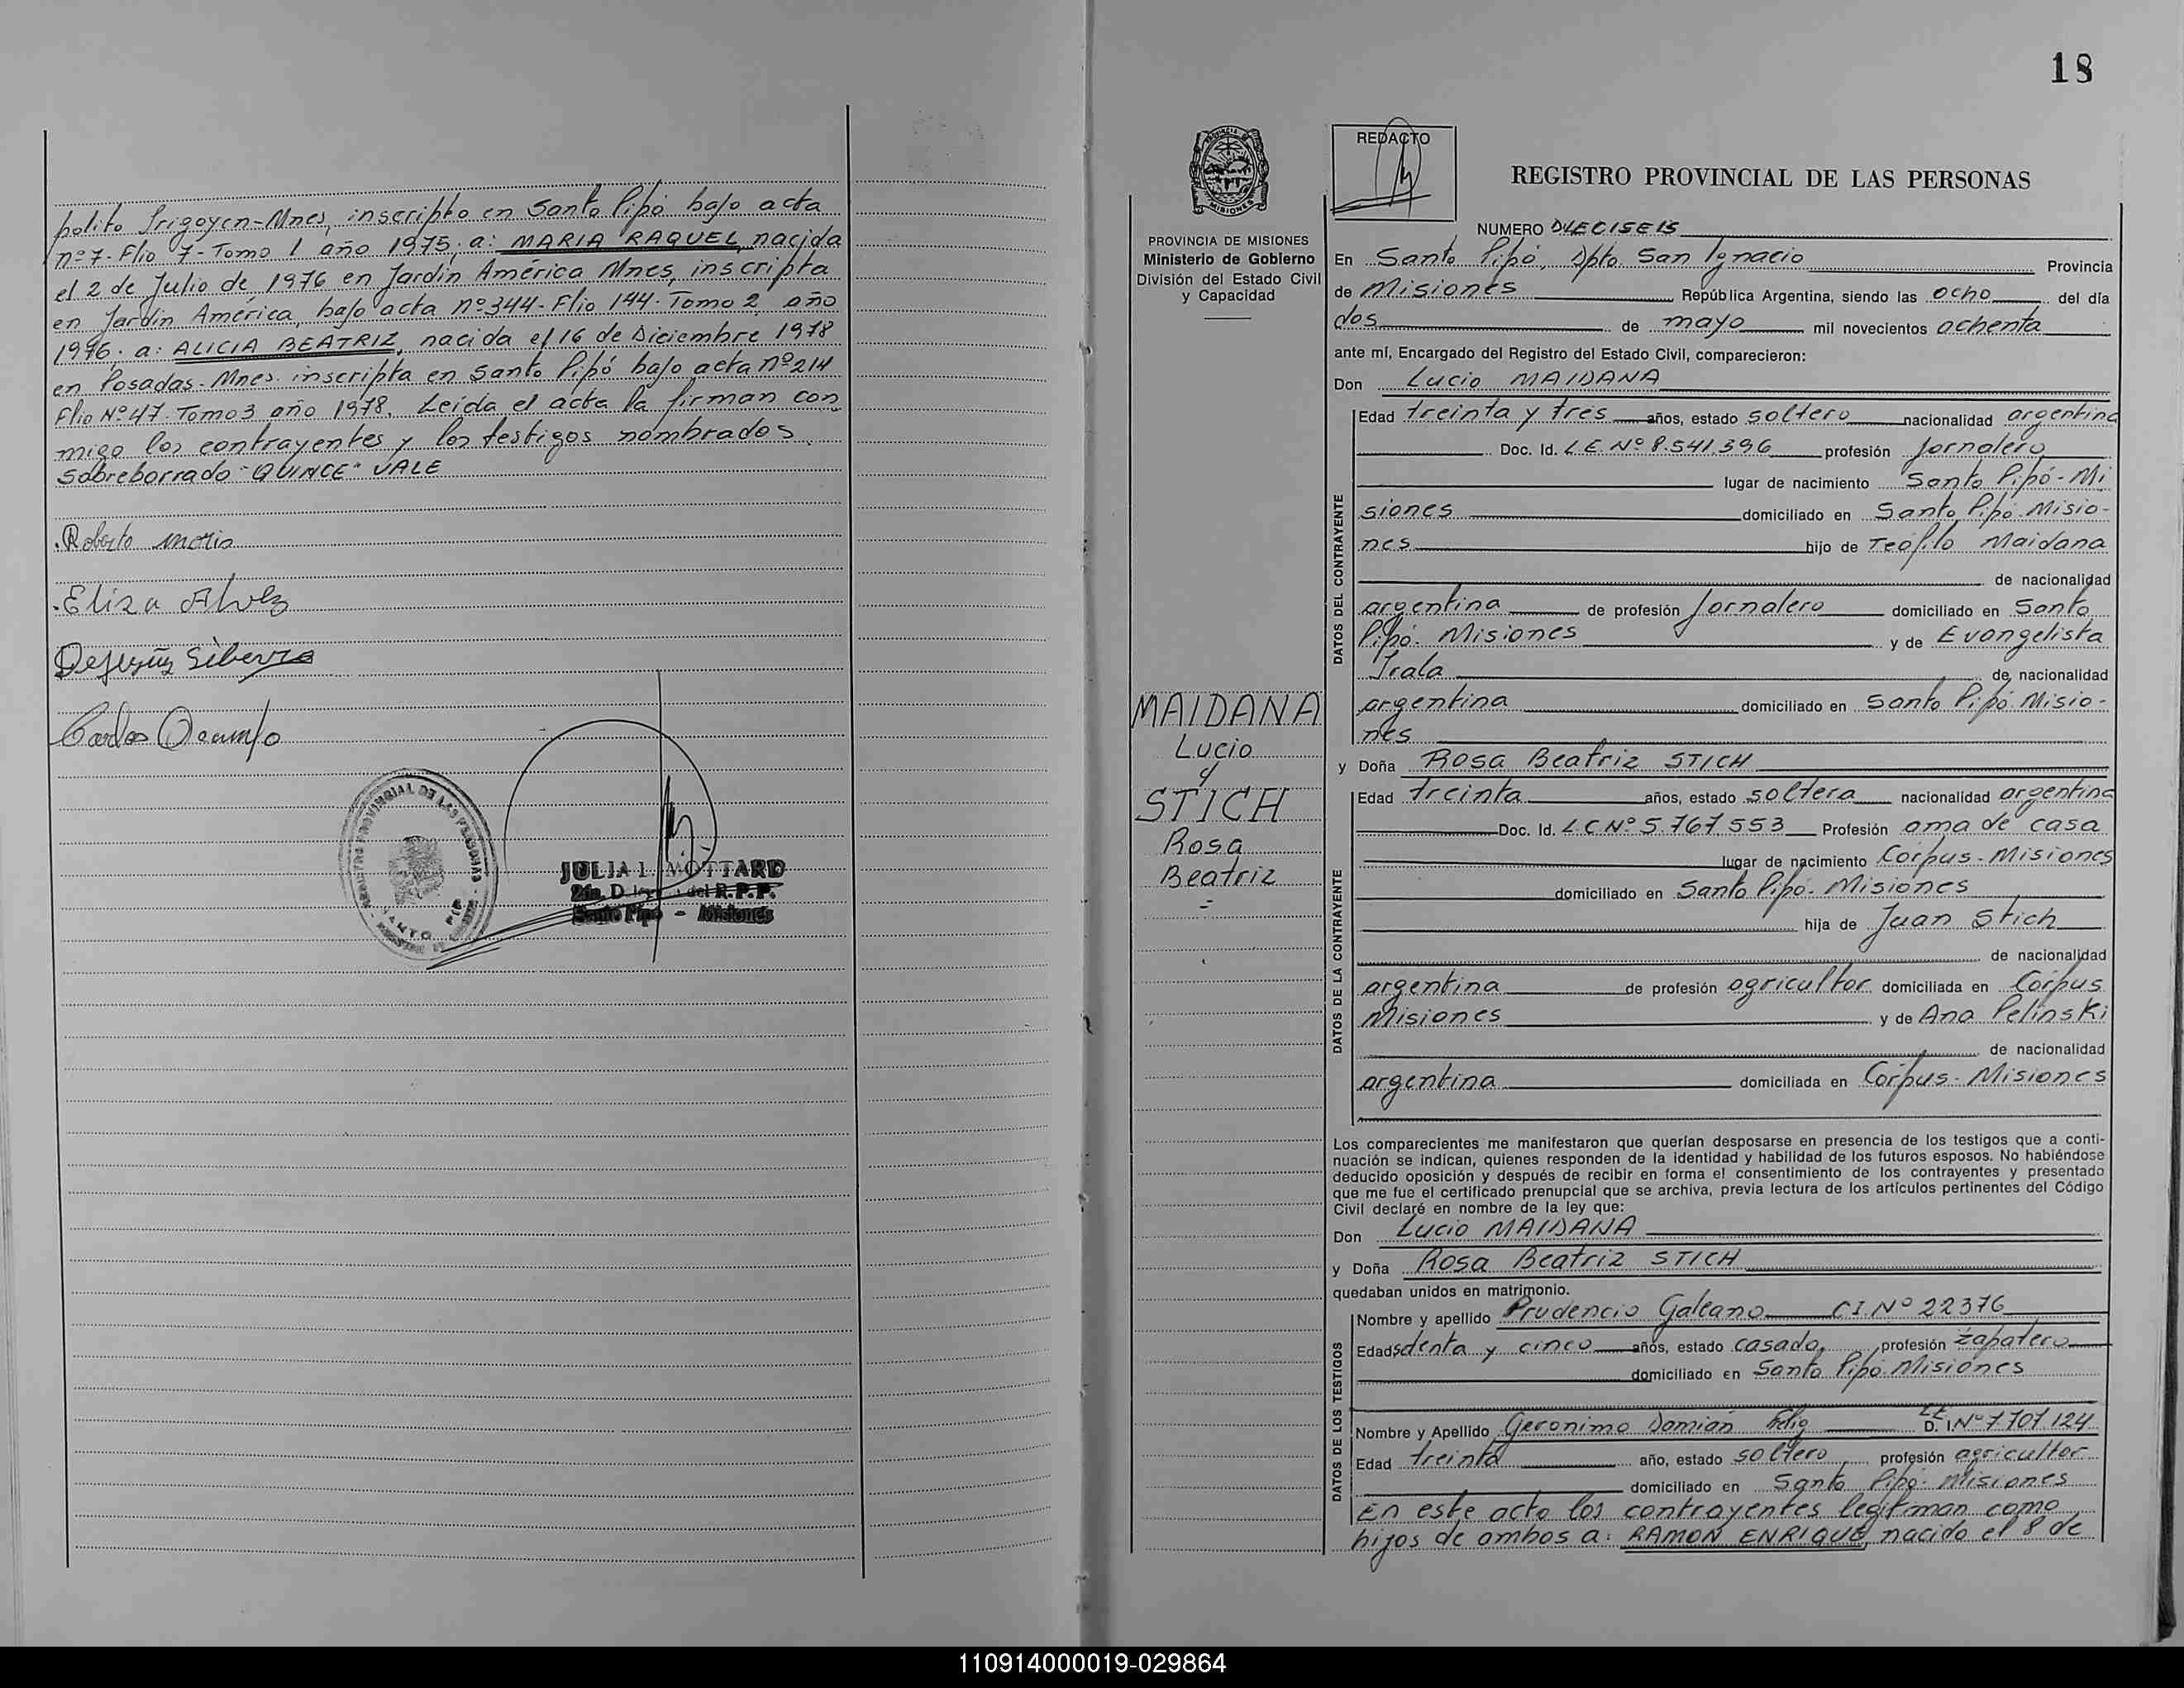 polito Irigoyen-Mnes, inscripto en Santo Pipó bajo acta
nº 7- Flio 7- Tomo 1 año 1975; a: MARIA RAQUEL, nacida
el 2 de Julio de 1976 en Jardín América Mnes, inscripta
en Jardín América, bajo acta nº 344- Flio 144- Tomo 2 año
1976. a: ALICIA BEATRIZ, nacida el 16 de Diciembre 1978
en Posadas- Mnes. inscripta en Santo Pipó bajo acta nº 214
Flio Nº 47. Tomo 3 año 1978. Leída el acta la firman con
migo los contrayentes y los testigos nombrados.
Sobreborrado "QUINCE" VALE
Roberto
Eliza Alvez
Carlos Ocampo
REGISTRO PROVINCIAL DE LAS PERSONAS
JULIA I. MOTTARD
del R.P.P.
Santo Pipó - Misiones
18
PROVINCIA DE MISIONES
Ministerio de Gobierno
División del Estado Civil
y Capacidad
MAIDANA
Lucio
y
STICH
Rosa
Beatriz
REDACTO
REGISTRO PROVINCIAL DE LAS PERSONAS
NUMERO DIECISEIS
En Santo Pipó, Dpto. San Ignacio Provincia
de Misiones República Argentina, siendo las ocho del día
dos de mayo mil novecientos ochenta
ante mí, Encargado del Registro del Estado Civil, comparecieron:
Don Lucio MAIDANA
DATOS DEL CONTRAYENTE
Edad treinta y tres años, estado soltero nacionalidad argentina
Doc. Id. L.E. Nº 8.541.396 profesión Jornalero
lugar de nacimiento Santo Pipó- Mi
siones domiciliado en Santo Pipó. Misio-
nes hijo de Teófilo Maidana
de nacionalidad
argentina de profesión Jornalero domiciliado en Santo
Pipó- Misiones y de Evangelista
Irala de nacionalidad
argentina domiciliado en Santo Pipó. Misio-
nes
y Doña Rosa Beatriz STICH
DATOS DE LA CONTRAYENTE
Edad treinta años, estado soltera nacionalidad argentina
Doc. Id. L C Nº 5.767.553 Profesión ama de casa
lugar de nacimiento Corpus- Misiones
domiciliado en Santo Pipó- Misiones
hija de Juan Stich
de nacionalidad
argentina de profesión agricultor domiciliada en Corpus
Misiones y de Ana Pelinski
de nacionalidad
argentina domiciliada en Corpus- Misiones
Los comparecientes me manifestaron que querían desposarse en presencia de los testigos que a conti-
nuación se indican, quienes responden de la identidad y habilidad de los futuros esposos. No habiéndose
deducido oposición y después de recibir en forma el consentimiento de los contrayentes y presentado
que me fue el certificado prenupcial que se archiva, previa lectura de los artículos pertinentes del Código
Civil declaré en nombre de la ley que:
Don Lucio MAIDANA
y Doña Rosa Beatriz STICH
quedaban unidos en matrimonio.
DATOS DE LOS TESTIGOS
Nombre y apellido Prudencio Galeano C I. Nº 22376
Edad setenta y cinco años, estado casado, profesión zapatero
domiciliado en Santo Pipó. Misiones
Nombre y Apellido Geronimo Damián L E D. I. Nº 7.707.124
Edad treinta año, estado soltero profesión agricultor
domiciliado en Santo Pipó- Misiones
En este acto los contrayentes legitiman como
hijos de ambos a: RAMON ENRIQUE, nacido el 8 de
110914000019-029864